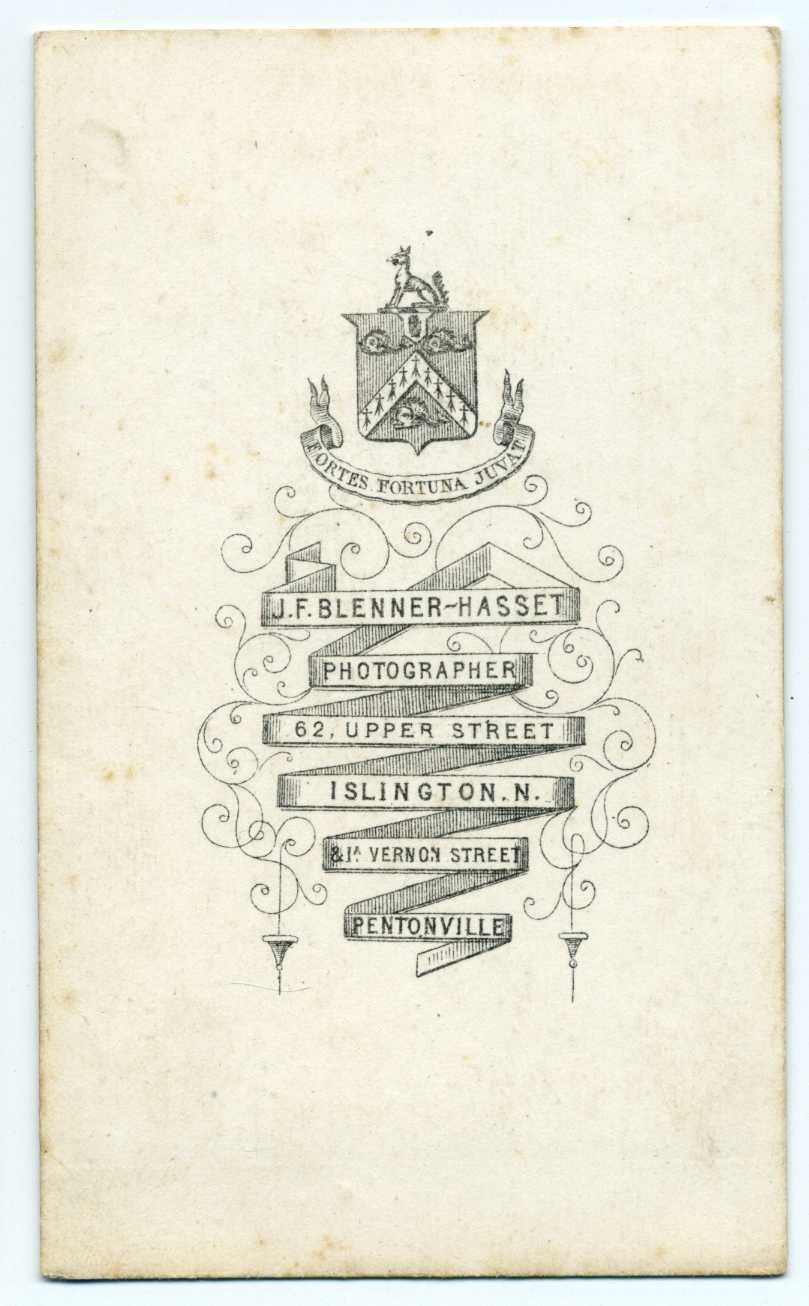 FORTES FORTUNA JUVAT
J.F. BLENNER-HASSET
PHOTOGRAPHER
62, UPPER STREET
ISLINGTON. N.
& 1A VERNON STREET
PENTONVILLE